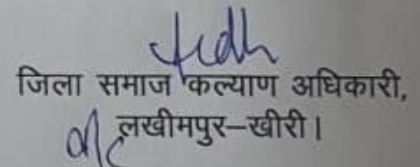 जिला समाज कल्याण अधिकारी,
लखीमपुर–खीरी।